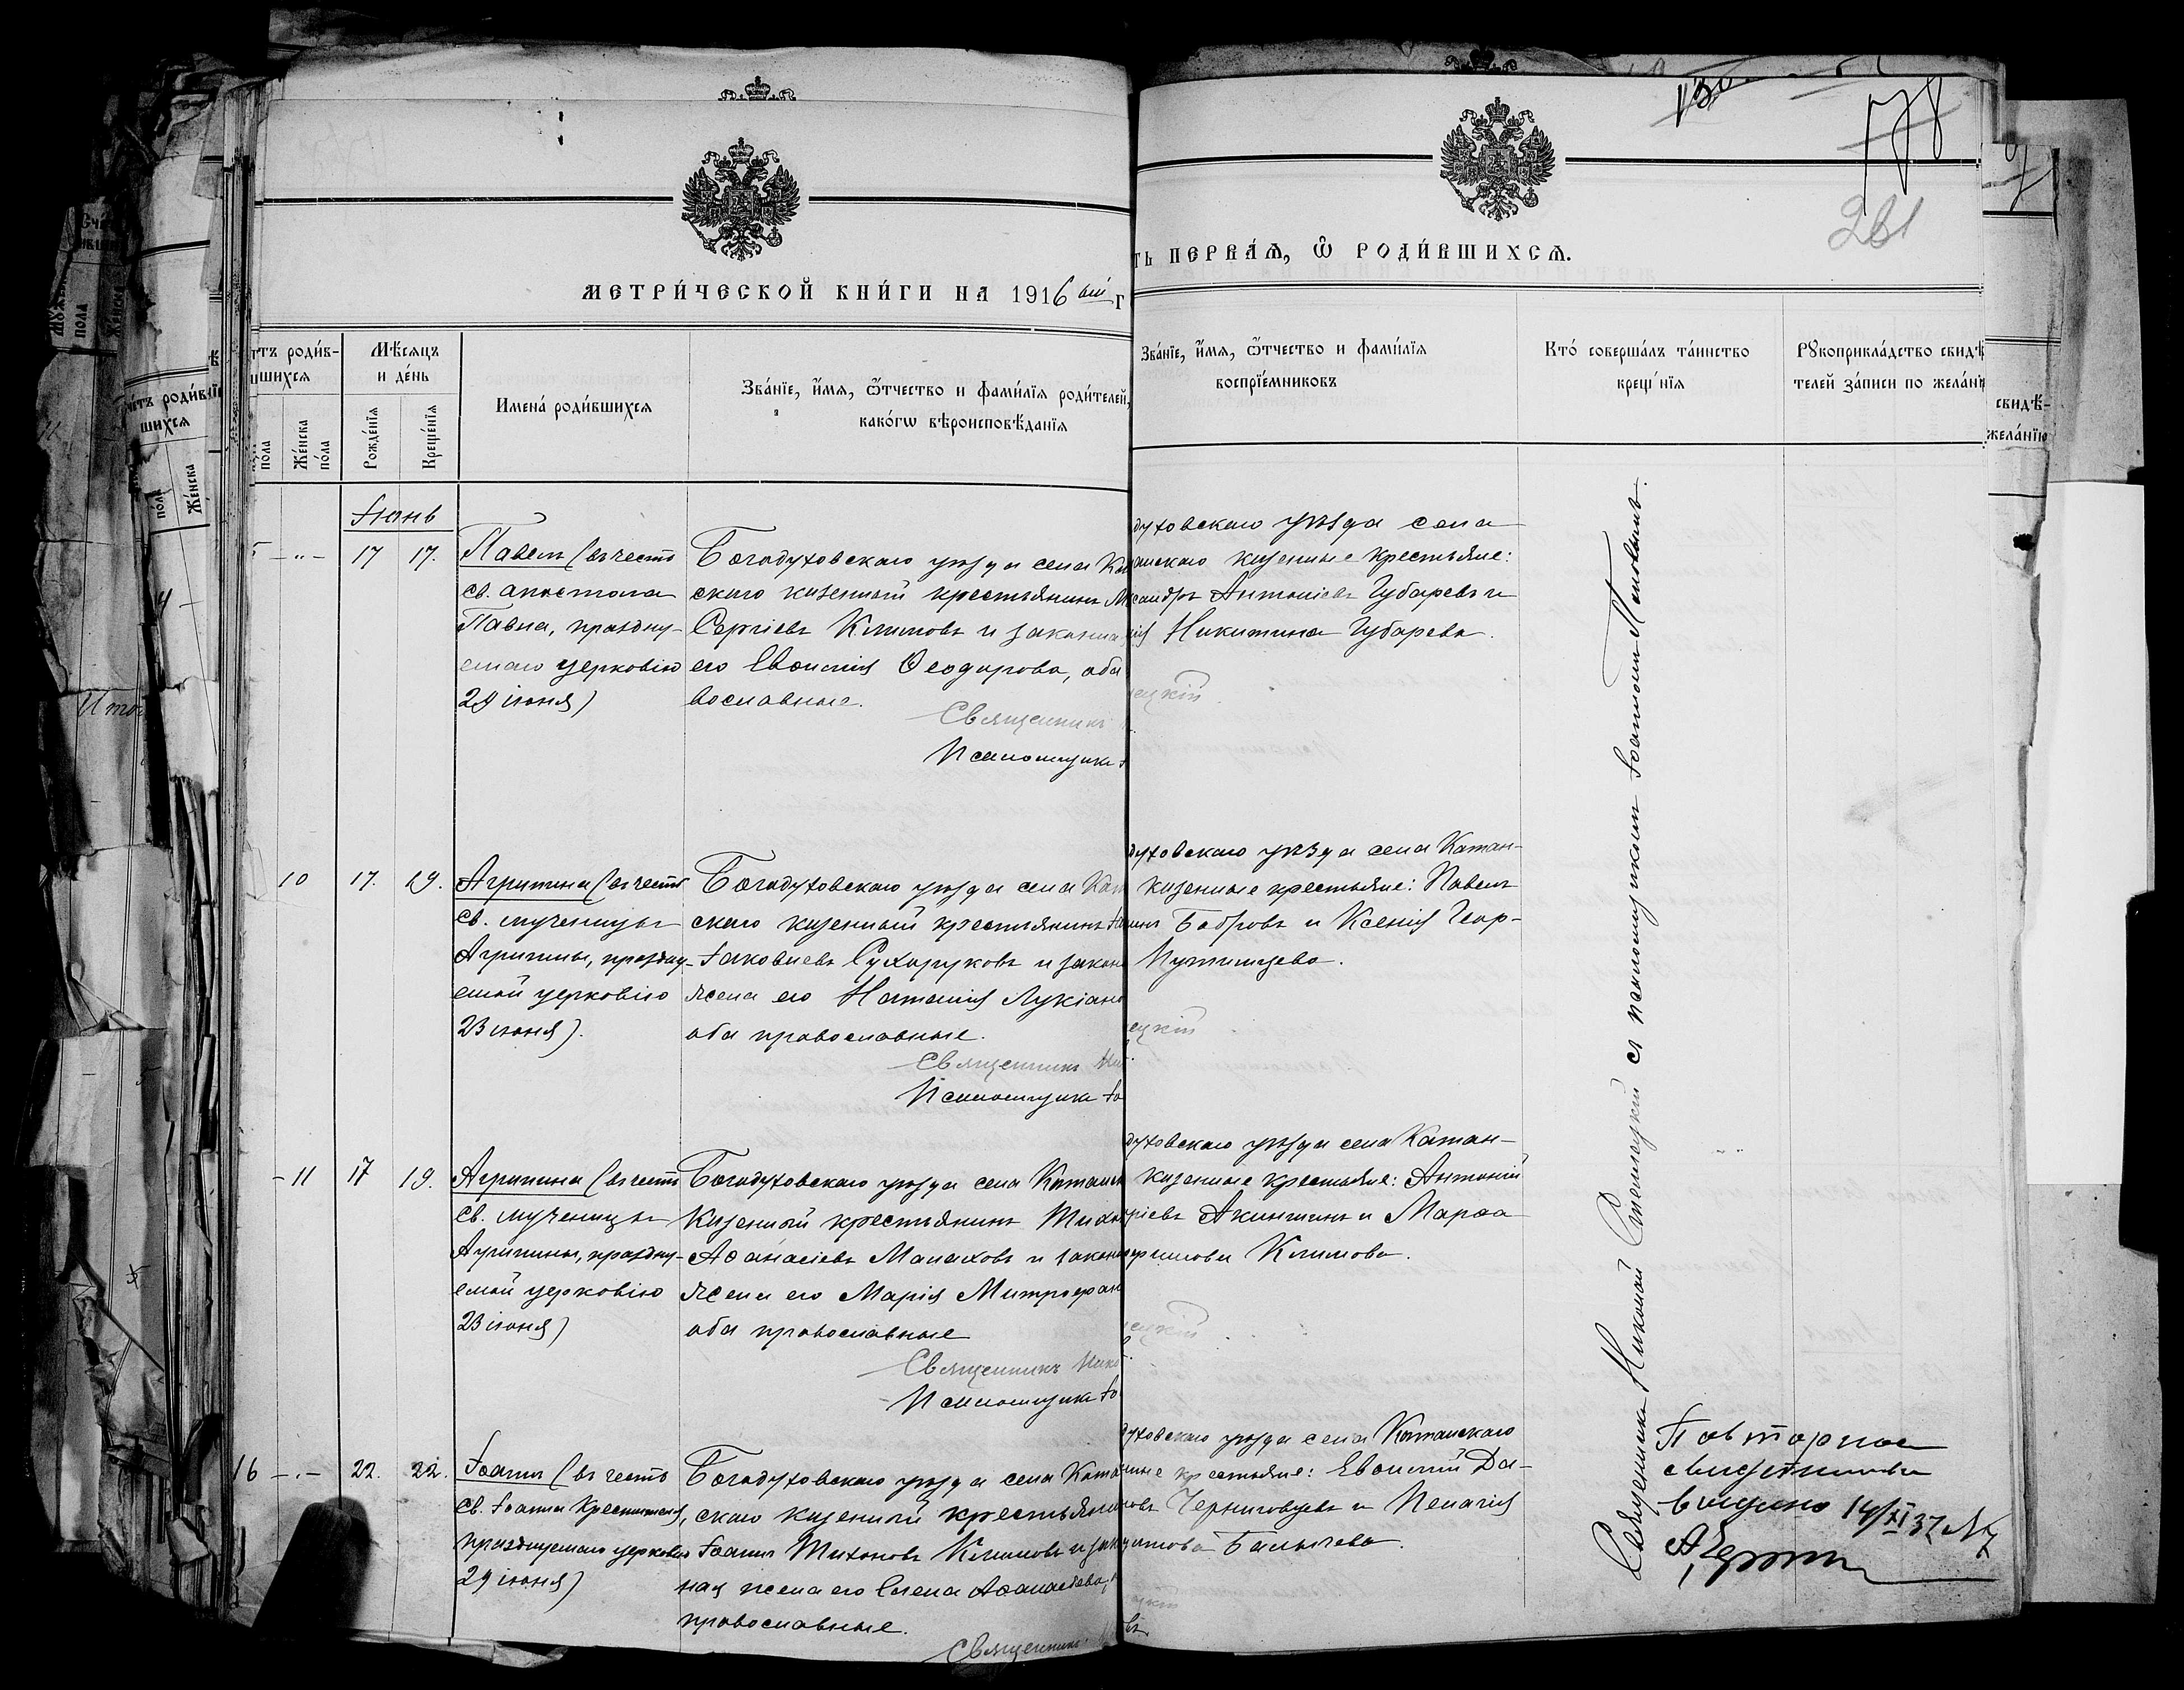 МЕТРИ́ЧЕСКОЙ КНИ́ГИ НА 1916 ый Г
ТЬ ПЕРВА́Ѧ, Ѽ РОДИ́ВШИХСѦ.
178
261
тъ роди́в-
шихсѧ
по́ла
Же́нска
по́ла
Мѣ́сѧцъ
и де́нь
Рожде́нїѧ
Креще́нїѧ
Имена́ роди́вшихсѧ
Зва́нїе, и́мѧ, ѻ́тчество и фами́лїѧ роди́телей,
како́гѡ вѣроисповѣ́данїѧ
Зва́нїе, и́мѧ, ѻ́тчество и фами́лїѧ
воспрїе́мниковъ
Кто́ соверша́лъ та́инство
креще́нїѧ
Рꙋкоприкла́дство свидѣ
телей за́писи по жела́нї
Іюнь
17 17.
Павелъ (въ честь
св. апостола
Павла, праздну-
емаго церковію
29 іюня)
Богодуховскаго уѣзда села Ка
скаго казенный крестьянинъ М
Сергіевъ Климовъ и законна
его Евѳимія Ѳеодорова, оба
вославные.
Священникъ
Псаломщикъ
духовскаго уѣзда села
анскаго казенные крестьяне:
сандръ Антоніевъ Губаревъ и
ія Никитина Губарева.
ецкій
10 17. 19.
Агрипина (въ честь
св. мученицы
Агрипины, праздну-
емой церковію
23 іюня).
Богодуховскаго уѣзда села Кат
скаго казенный крестьянинъ
Іаковлевъ Сухоруковъ и закон
жена его Наталія Лукіан
оба православные.
Священникъ Ни
Псаломщикъ Іо
духовскаго уѣзда села Катан-
казенные крестьяне: Павелъ
инъ Бобровъ и Ксенія Геор-
Путинцева.
ецкій
11 17 19.
Агрипина (въ честь
св. мученицы
Агрипины, праздну-
емой церковію
23 іюня)
Богодуховскаго уѣзда села Катанс
казенный крестьянинъ Тихо
Аѳанасіевъ Малаховъ и закон
жена его Марія Митрофан
оба православные
Священникъ Нико
Псаломщикъ Іо
духовскаго уѣзда села Катан-
казенные крестьяне: Антоній
ріевъ Акиншинъ и Марѳа
Климова.
ецкій
16 22. 22.
Іоаннъ (въ честь
св. Іоанна Крестителя,
празднуемаго церковію
29 іюня)
Богодуховскаго уѣзда села Ката
скаго казенный крестьянин
Іоаннъ Тихоновъ Климовъ и зак
ная жена его Елена Аѳанасіева,
православные.
Священникъ
духовскаго уѣзда села Катанскаго
нные крестьяне: Евѳимій Да-
новъ Черниговцевъ и Пелагія
Балычева.
Священникъ Николай Степецкій съ псаломщикомъ Іоанномъ Поповымъ.
Повторное
свидетельство
выдано 14/XI 37 №7